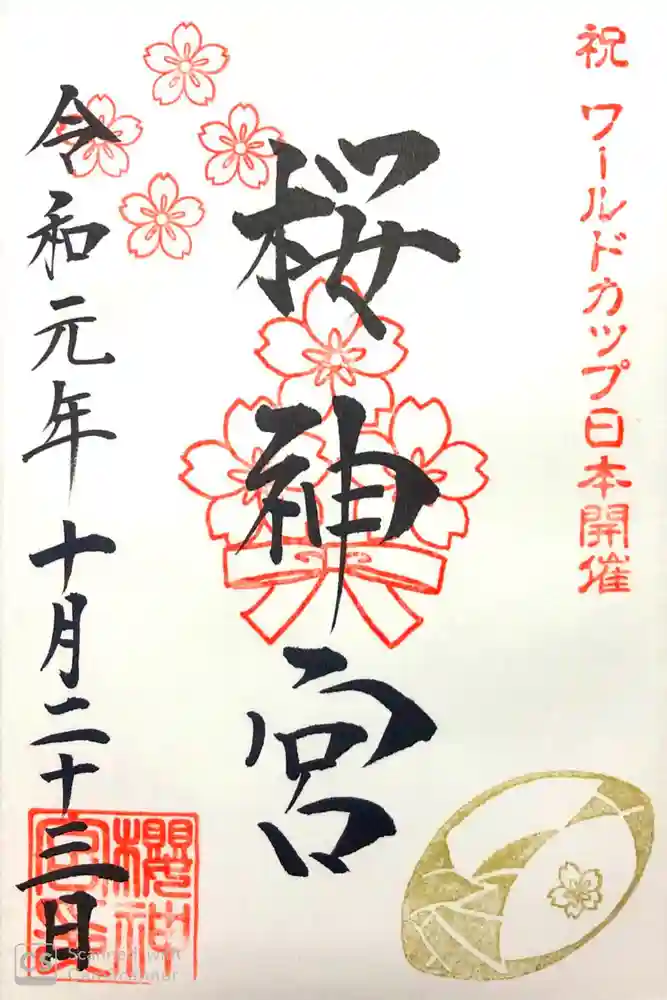 祝 ワールドカップ日本開催
桜神宮
令和元年 十月二十三日
櫻神
CS Scanned with
CamScanner